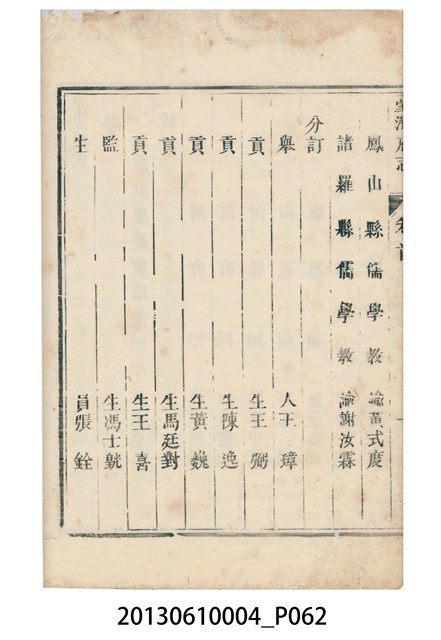 臺灣府志 卷首
鳳山縣儒學教諭黃式度
諸羅縣儒學教諭謝汝霖
分訂
舉人王璋
貢生王弼
貢生陳逸
貢生黃巍
貢生馬廷對
貢生王喜
監生馮士㲶
生員張銓
20130610004_P062